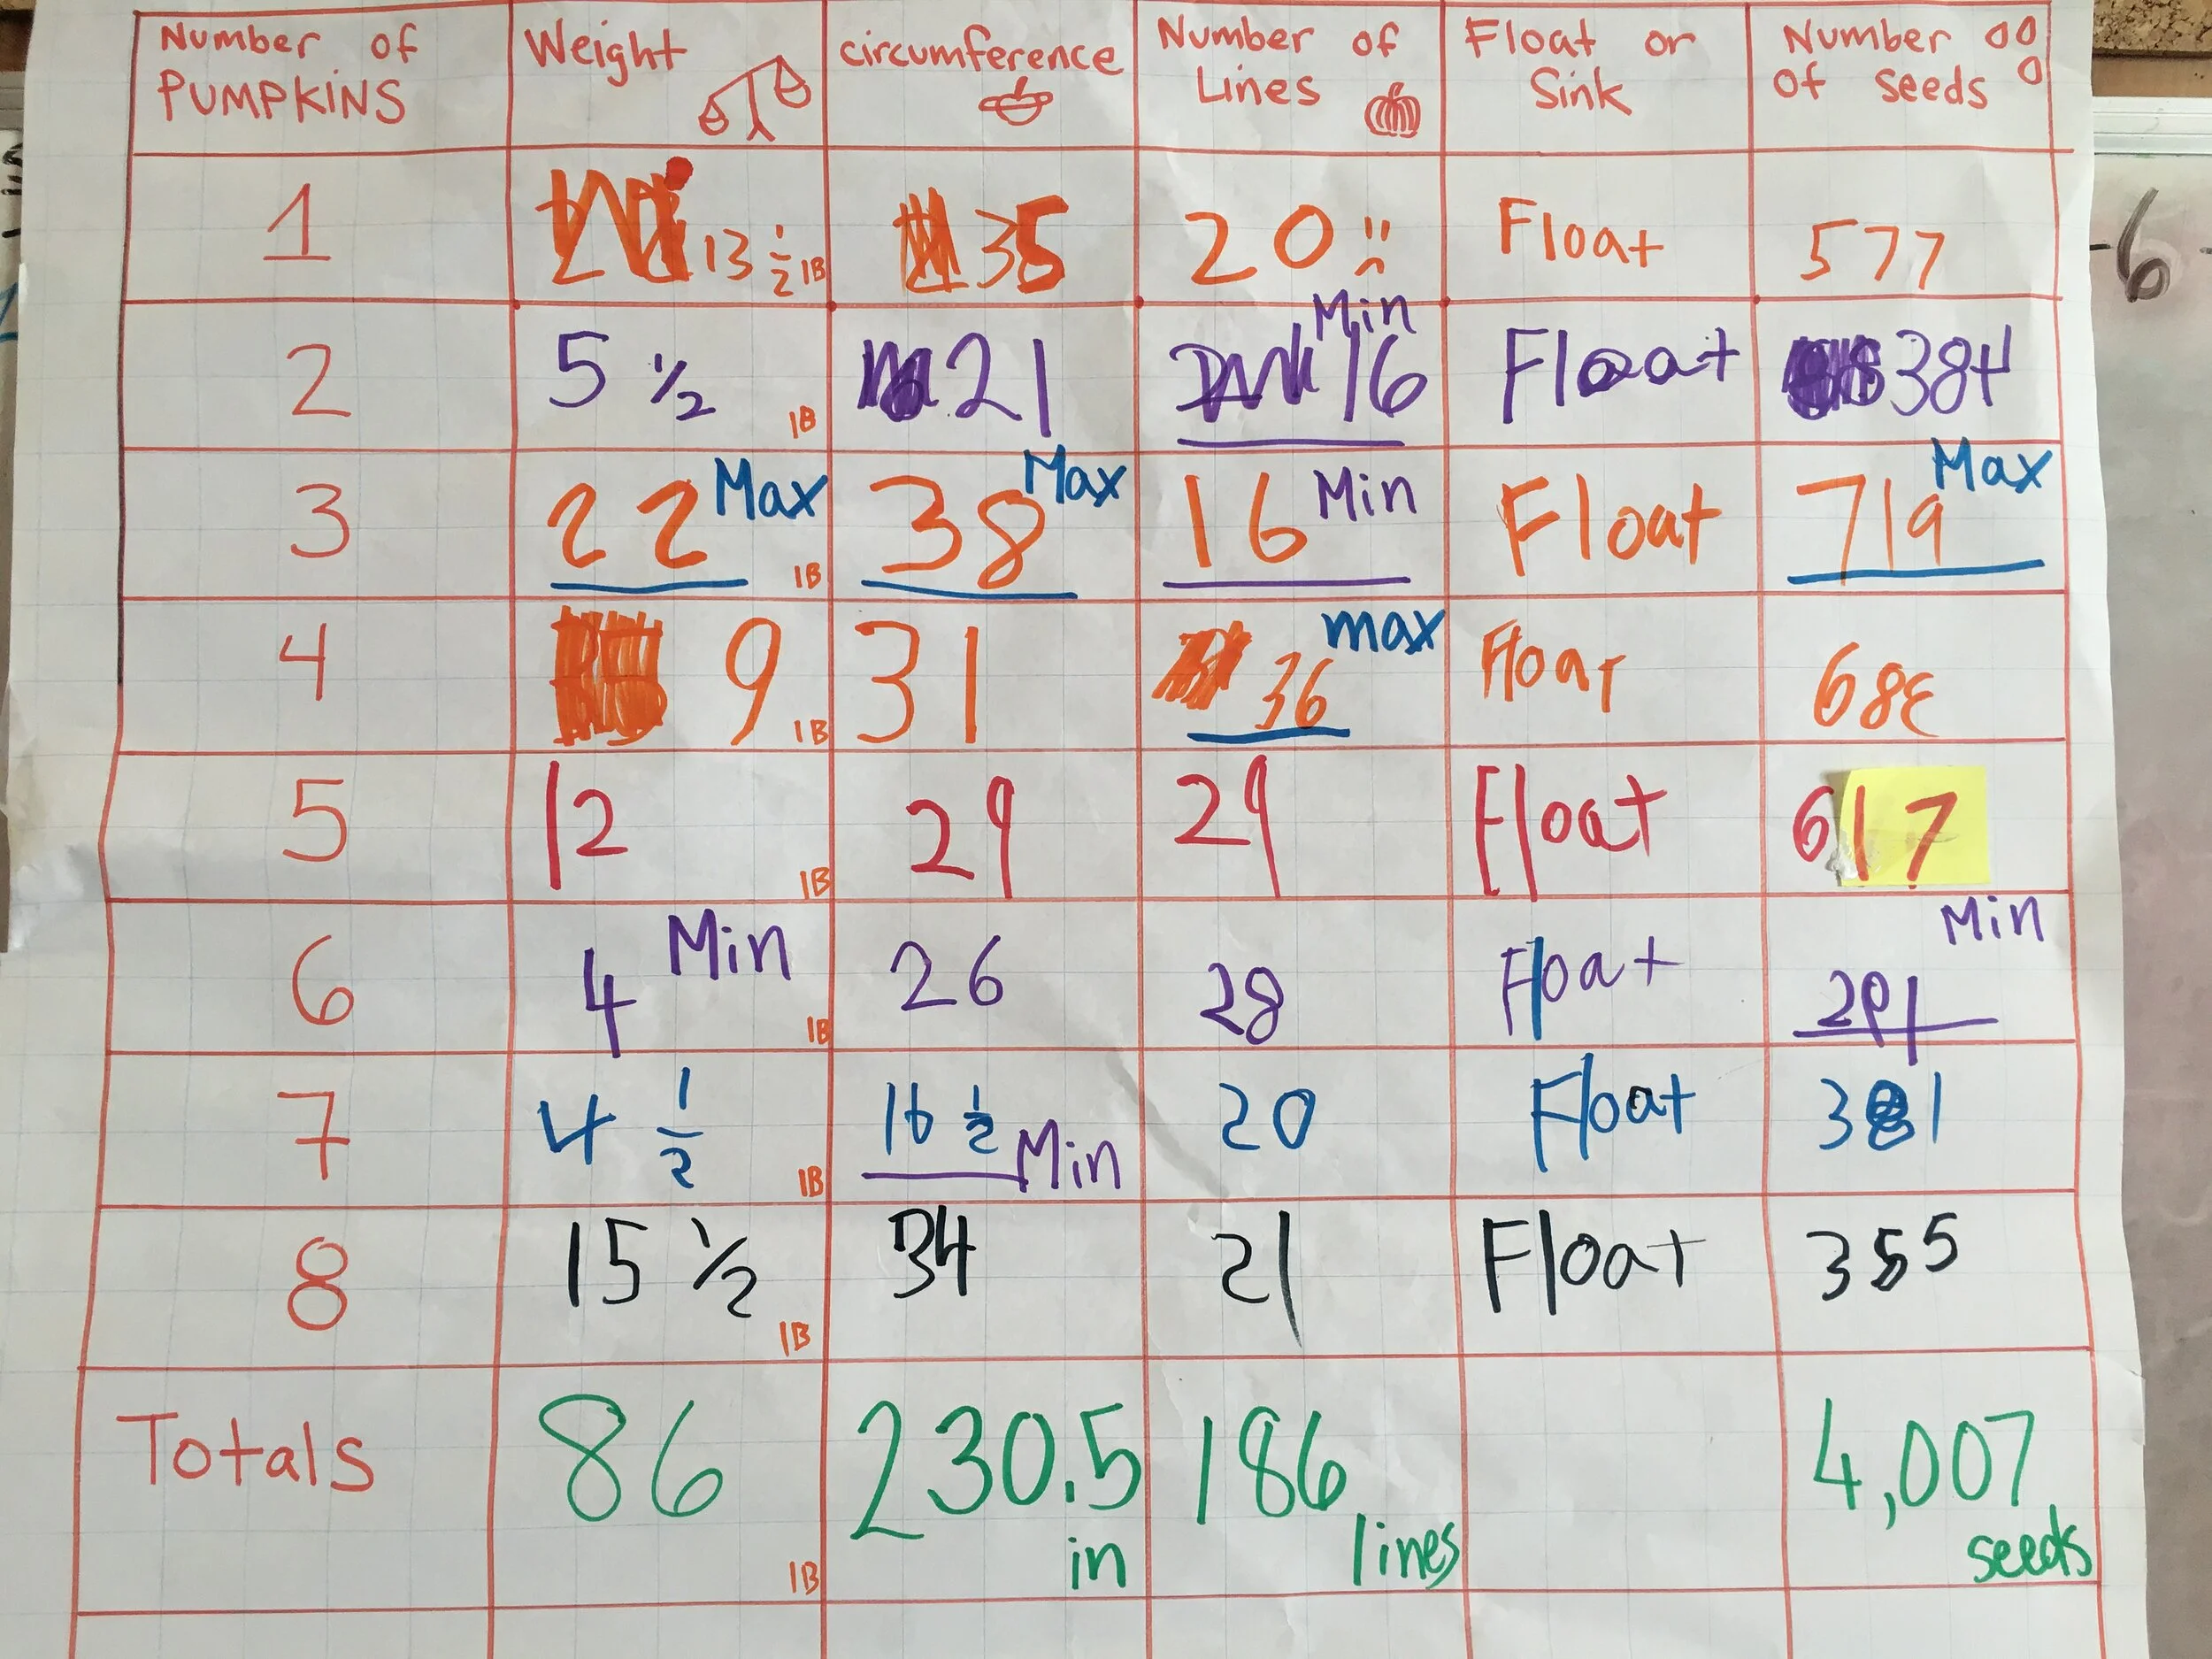 Number of PUMPKINS Weight circumference Number of Lines Float or Sink Number of seeds
1 13 1/2 lB 35 20 Float 577
2 5 1/2 lB 21 16 Min Float 384
3 22 Max lB 38 Max 16 Min Float 719 Max
4 9 lB 31 36 max Float 683
5 12 lB 29 29 Float 617
6 4 Min lB 26 28 Float 291 Min
7 4 1/2 lB 16 1/2 Min 20 Float 381
8 15 1/2 lB 34 21 Float 355
Totals 86 lB 230.5 in 186 lines 4,007 seeds
-6-